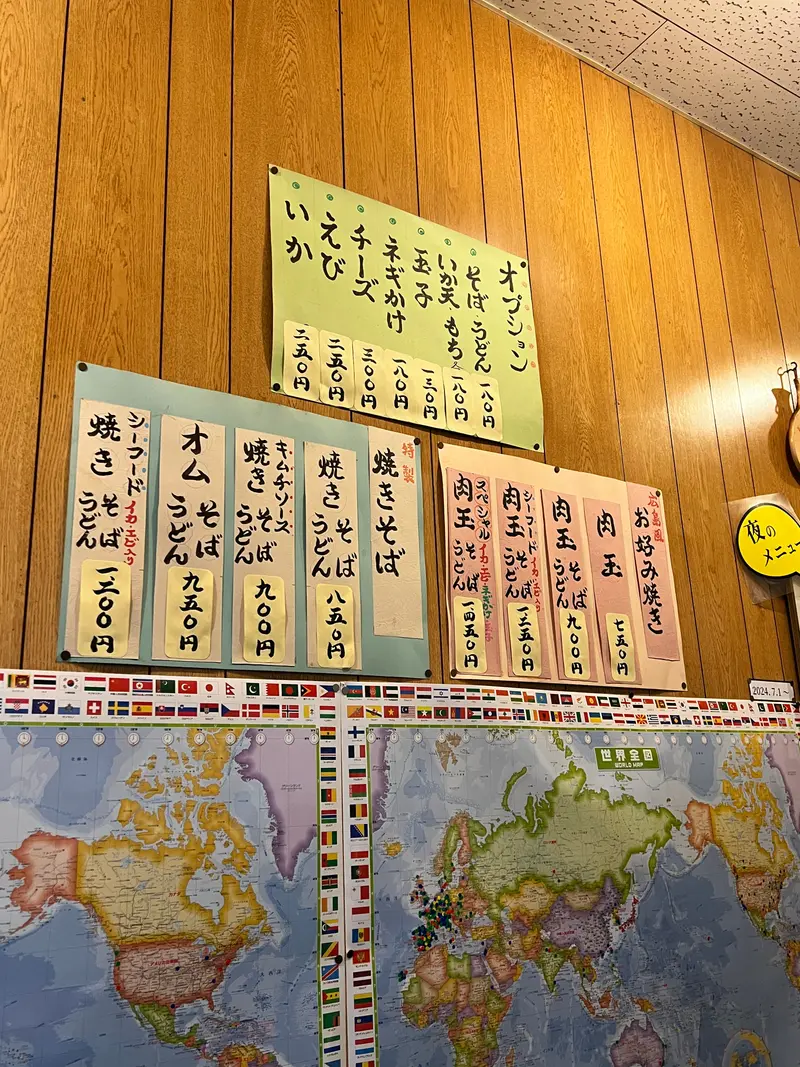 オプション
そば うどん 一八〇円
いか天 もち 一八〇円
玉子 一三〇円
ネギかけ 一八〇円
チーズ 三〇〇円
えび 二五〇円
いか 二五〇円
特製
焼きそば
焼き そば うどん 八五〇円
キムチソース
焼き そば うどん 九〇〇円
オム そば うどん 九五〇円
シーフード イカ エビ入り
焼き そば うどん 一三〇〇円
広島風
お好み焼き
肉玉 七五〇円
肉玉 そば うどん 九〇〇円
シーフード イカ エビ入り
肉玉 そば うどん 一三五〇円
スペシャル イカ エビ ネギかけ
肉玉 そば うどん 一四五〇円
夜の
メニュー
2024.7.1〜
世界全図
WORLD MAP